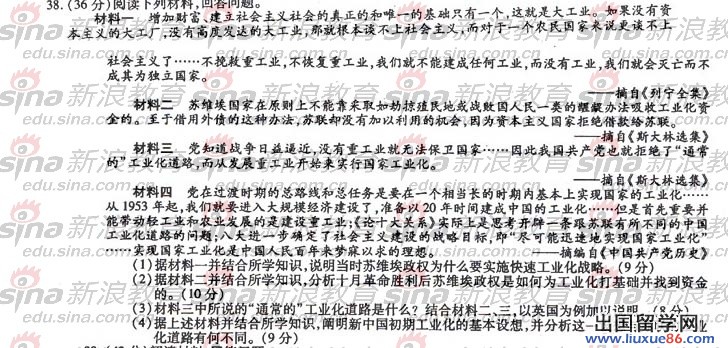 38.(36分)阅读下列材料,回答问题。
材料一 增加财富、建立社会主义社会的真正的和唯一的基础只有一个,这就是大工业。如果没有资
本主义的大工厂,没有高度发达的大工业,那就根本谈不上社会主义,而对于一个农民国家来说更谈不上
社会主义了……不挽救重工业,不恢复重工业,我们就不能建成任何工业,而没有工业,我们就会灭亡而不
成其为独立国家。
——摘自《列宁全集》
材料二 苏维埃国家在原则上不能靠采取如劫掠殖民地或战败国人民一类的龌龊办法吸收工业化资
金的。至于借用外债的这种办法,苏联却没有加以利用的机会,因为资本主义国家拒绝借款给苏联。
——摘自《斯大林选集》
材料三 党知道战争日益逼近,没有重工业就无法保卫国家……因此我国共产党也就拒绝了“通常
的”工业化道路,而从发展重工业开始来实行国家工业化。
——摘自《斯大林选集》
材料四 党在过渡时期的总路线和总任务是要在一个相当长的时期内基本上实现国家的工业化……
从1953年起,我们就要进入大规模经济建设了,准备以20年时间建成中国的工业化……但是首先重要并
能带动轻工业和农业发展的是建设重工业;《论十大关系》实际上是思考开辟一条跟苏联有所不同的中国
工业化道路的问题;八大进一步确定了社会主义建设的战略目标,即“尽可能迅速地实现国家工业化”
……实现国家工业化是中国人民百年来梦寐以求的理想。 ——摘编自《中国共产党历史》
(1)据材料一并结合所学知识,说明当时苏维埃政权为什么要实施快速工业化战略。(9分)
(2)据材料二并结合所学知识,分析十月革命胜利后苏维埃政权是如何为工业化打基础并找到资金
的。(10分)
(3)材料三中所说的“通常的”工业化道路是什么?结合材料二、三,以英国为例加以说明。(8分)
(4)据上述材料并结合所学知识,阐明新中国初期工业化的基本设想,并分析这一
化道路有何不同。(9分)
sina新浪教育
edu.sina.com.cn
出国留学网
www.liuxue86.com